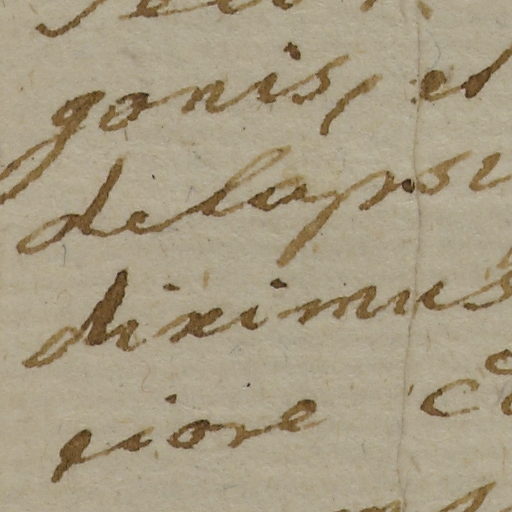 gonis, et
delapsu
diximus
riore